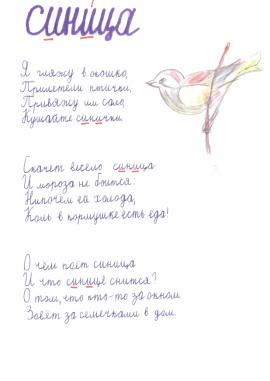 синица
Я гляжу в окошко,
Прилетели птички,
Привяжу им сало,
Кушайте синички.
Скачет весело синица
И мороза не боится:
Нипочём ей холода,
Коль в кормушке есть еда!
О чём поёт синица
И что синице снится?
О том, что кто-то за окном
Зовёт за семечками в дом.